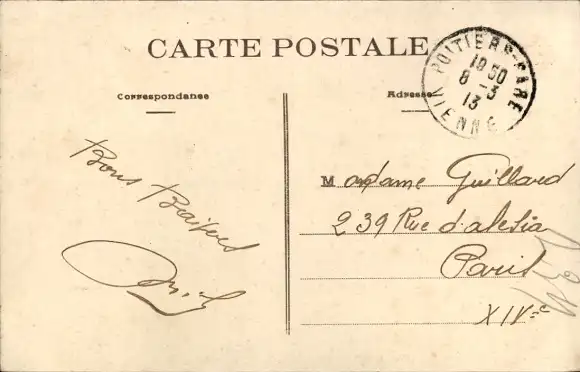 CARTE POSTALE
Correspondance
Adresse
POITIERS-GARE
1930
8 -3
13
VIENNE
Bons Baisers
Madame Guillard
239 Rue d'alesia
Paris
XIVe